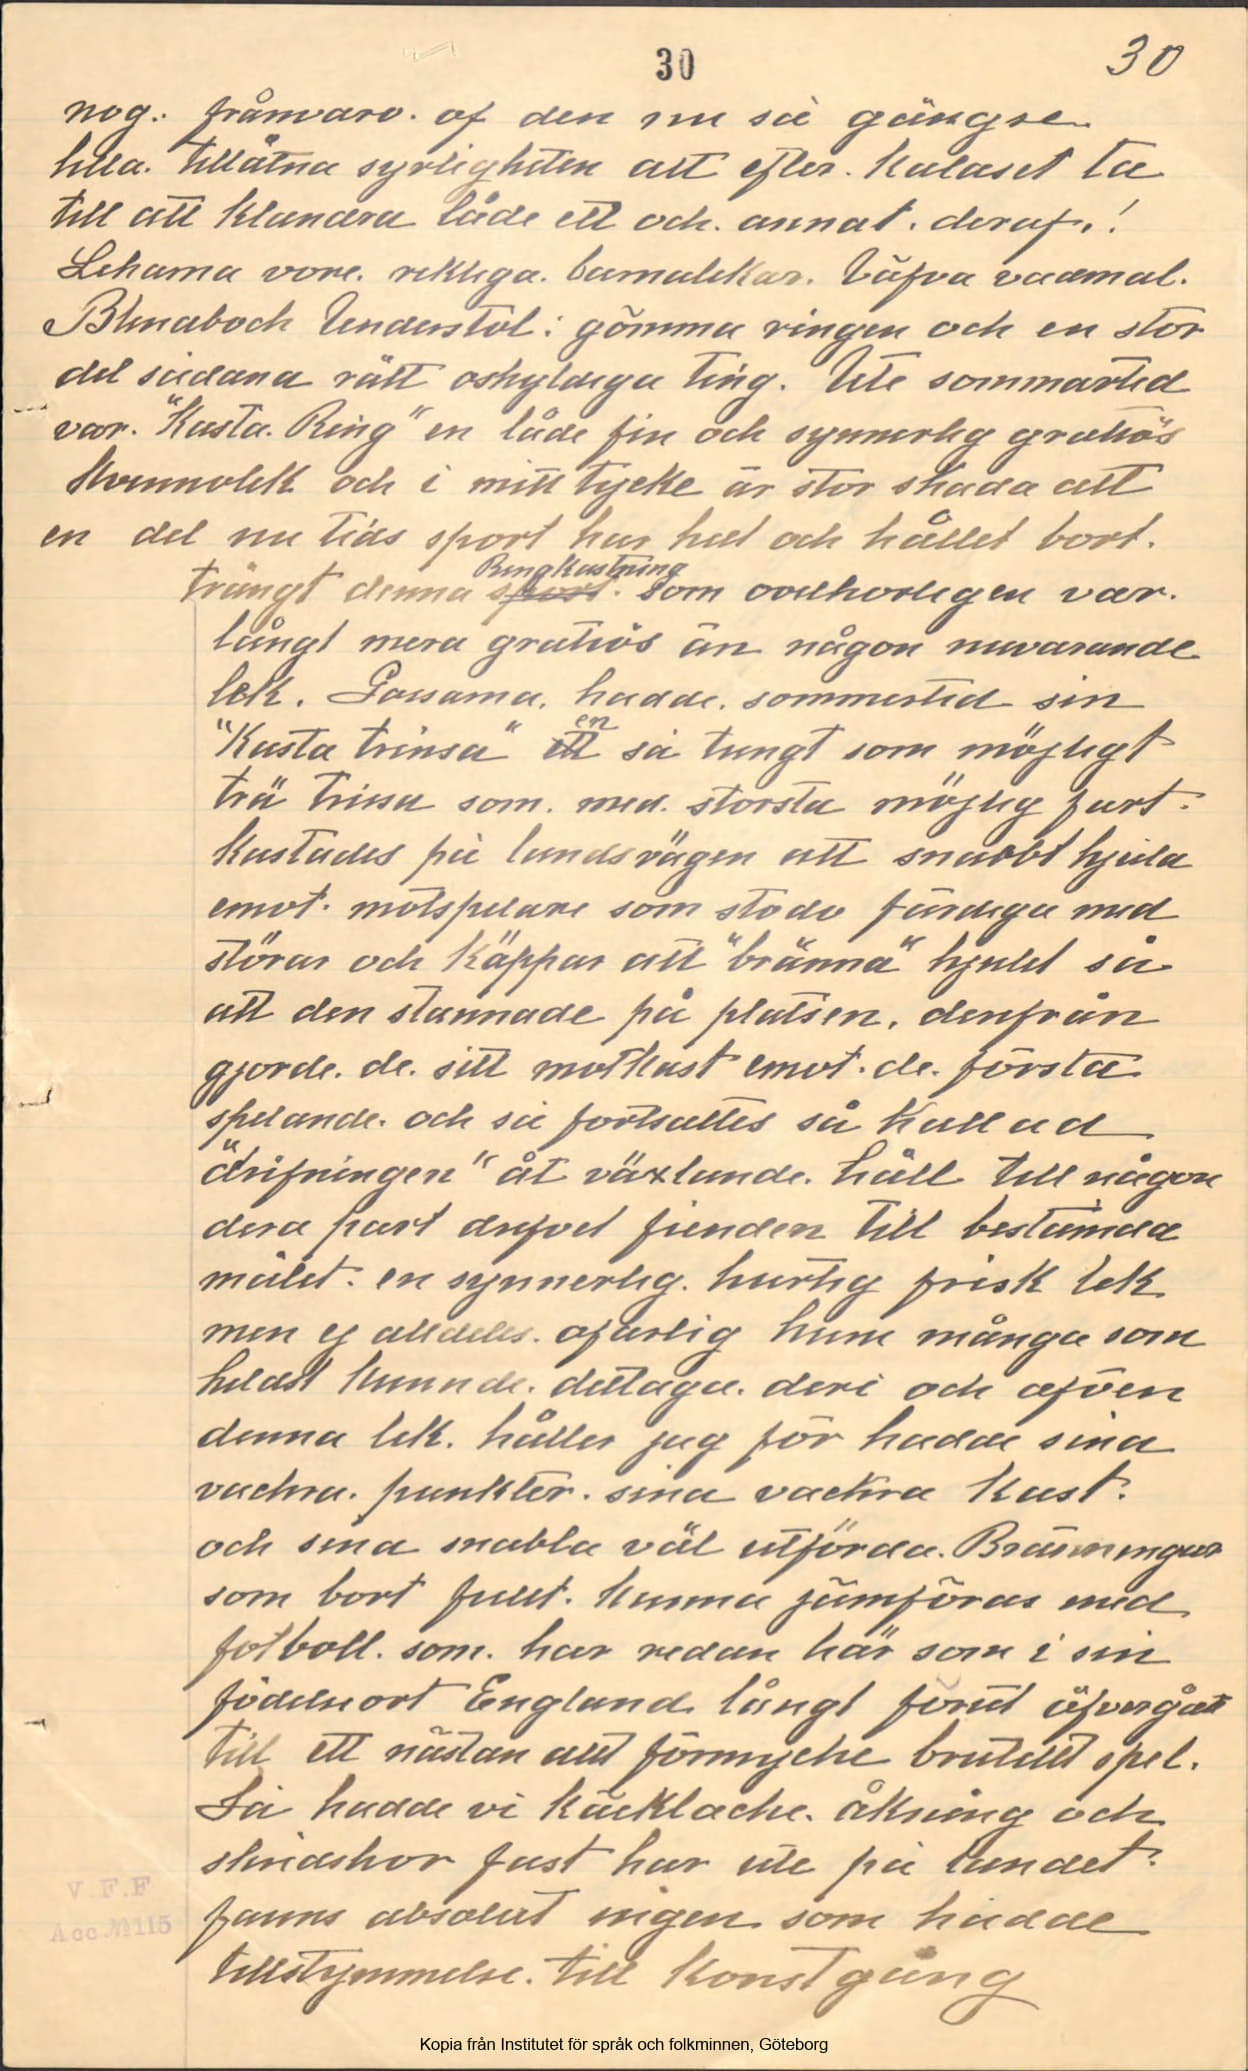 30
30
nog. frånvaro. af den nu så gängse
lilla. tillåtna syrligheten att efter. Kalaset ta
till att klandra både ett och. annat. deraf.!
Lekarna vore. riktiga. barnalekar. Väfva vadmal.
Blindbock Understol: gömma ringen och en stor
del sådana rätt oskyldiga ting. Ute sommartid
var. "Kasta. Ring" en både fin och synnerlig gratiös
Kvinnolek och i mitt tycke är stor skada att
en del nu tids sport har helt och hållet bort.
Ringkastning
trängt denna sport. som ovelkorligen var.
långt mera gratiös än någon nuvarande
lek. Gossarna. hadde. sommertid sin
en
"Kasta trinsa" ett så tungt som möjligt
trä trissa som. med. största möjlig fart.
Kastades på landsvägen att snabbt hjula
emot. motspelare som stodo färdiga med
störar och Käppar att "bränna" hjulet så
att den stannade på platsen. denfrån
gjorde. de. sitt motkast emot. de. första
spelande. och så fortsattes så Kallad
"drifningen" åt växlande. håll till någon
dera part drifvet fienden till bestämda
målet. en synnerlig. hurtig frisk lek
men ej alldeles. ofarlig huru många som
heldst Kunnde. deltaga. deri och äfven
denna lek. håller jag för hadde sina
vackra. punkter. sina vackra Kast.
och sina snabba väl utförda. Bränningar
som bort fullt. Kunna jämföras med
fotboll. som. har redan här som i sin
födelseort England långt förut öfvergått
till ett nästan allt förmycke brutallt spel.
Så hadde vi Kälkbacke. åkning och
skridskor fast här ute på landet.
fanns absolut ingen som hadde
tillstymmelse. till Konstgång
V.F.F
Acc № 115
Kopia från Institutet för språk och folkminnen, Göteborg